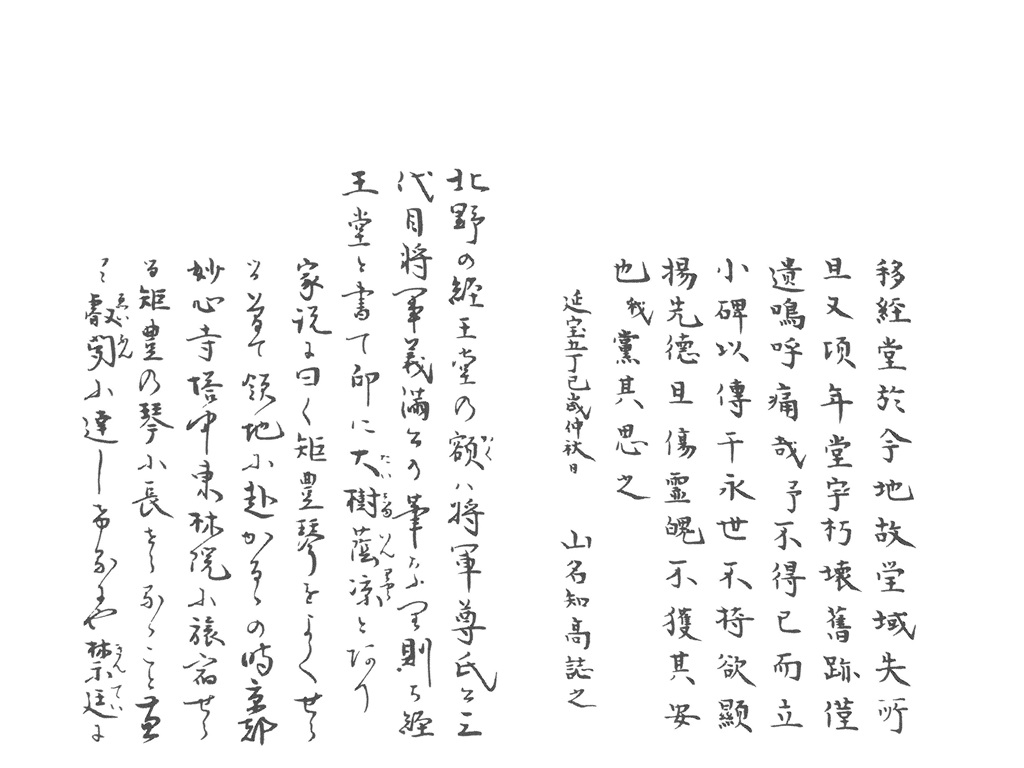 移経堂於今地故堂域失所
且又頃年堂宇朽壊舊跡僅
遺鳴呼痛哉予不得已而立
小碑以傳干永世不持欲顯
揚先德且傷霊魄不獲其安
也我黨其思之
延宝五丁巳歳仲秋日 山名知高誌之
北野の経王堂の額ハ将軍尊氏公三
代目将軍義満公の筆なり則ち経
王堂と書て印に大樹蔭凉とあり
家説に曰く矩豊琴をよくせら
領地に赴かるゝの時京都
妙心寺塔中東林院に旅宿せら
る矩豊の琴に長せらるゝこと
叡聞に達し 禁廷に